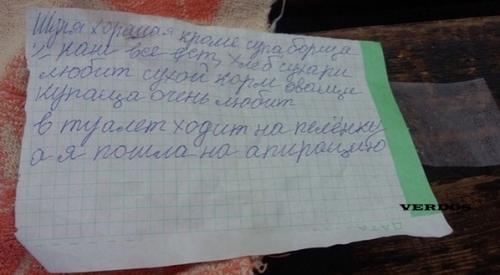 Шуря хорошая кроме супа борща
и каш все ест, хлеб сухари
любит сухой корм овощи
купаца очень любит
в туалет ходит на пелёнку
а я пошла на апирацию
VERDOS
ДАТА